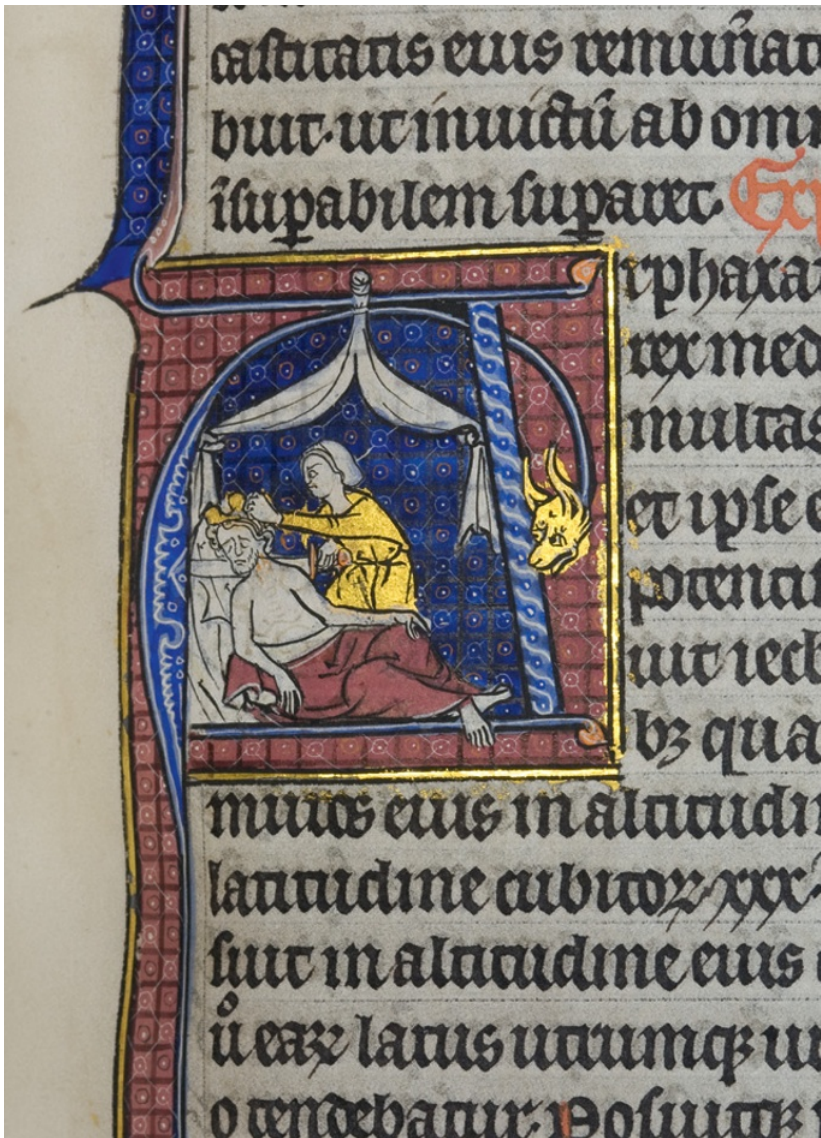 castitatis eius remun̄at
buit· ut inuictū ab omn
īsuꝑabilem suꝑaret· Exp
Arphaxa
rex med
multas
et ipse e
potentis
uit
bꝫ qua
muros eius in altitudin
latitudine cubitoꝝ xxx·
suit in altitudine eius
ů eaꝝ latus utrumqꝫ
tendebatur· Posuitqꝫ